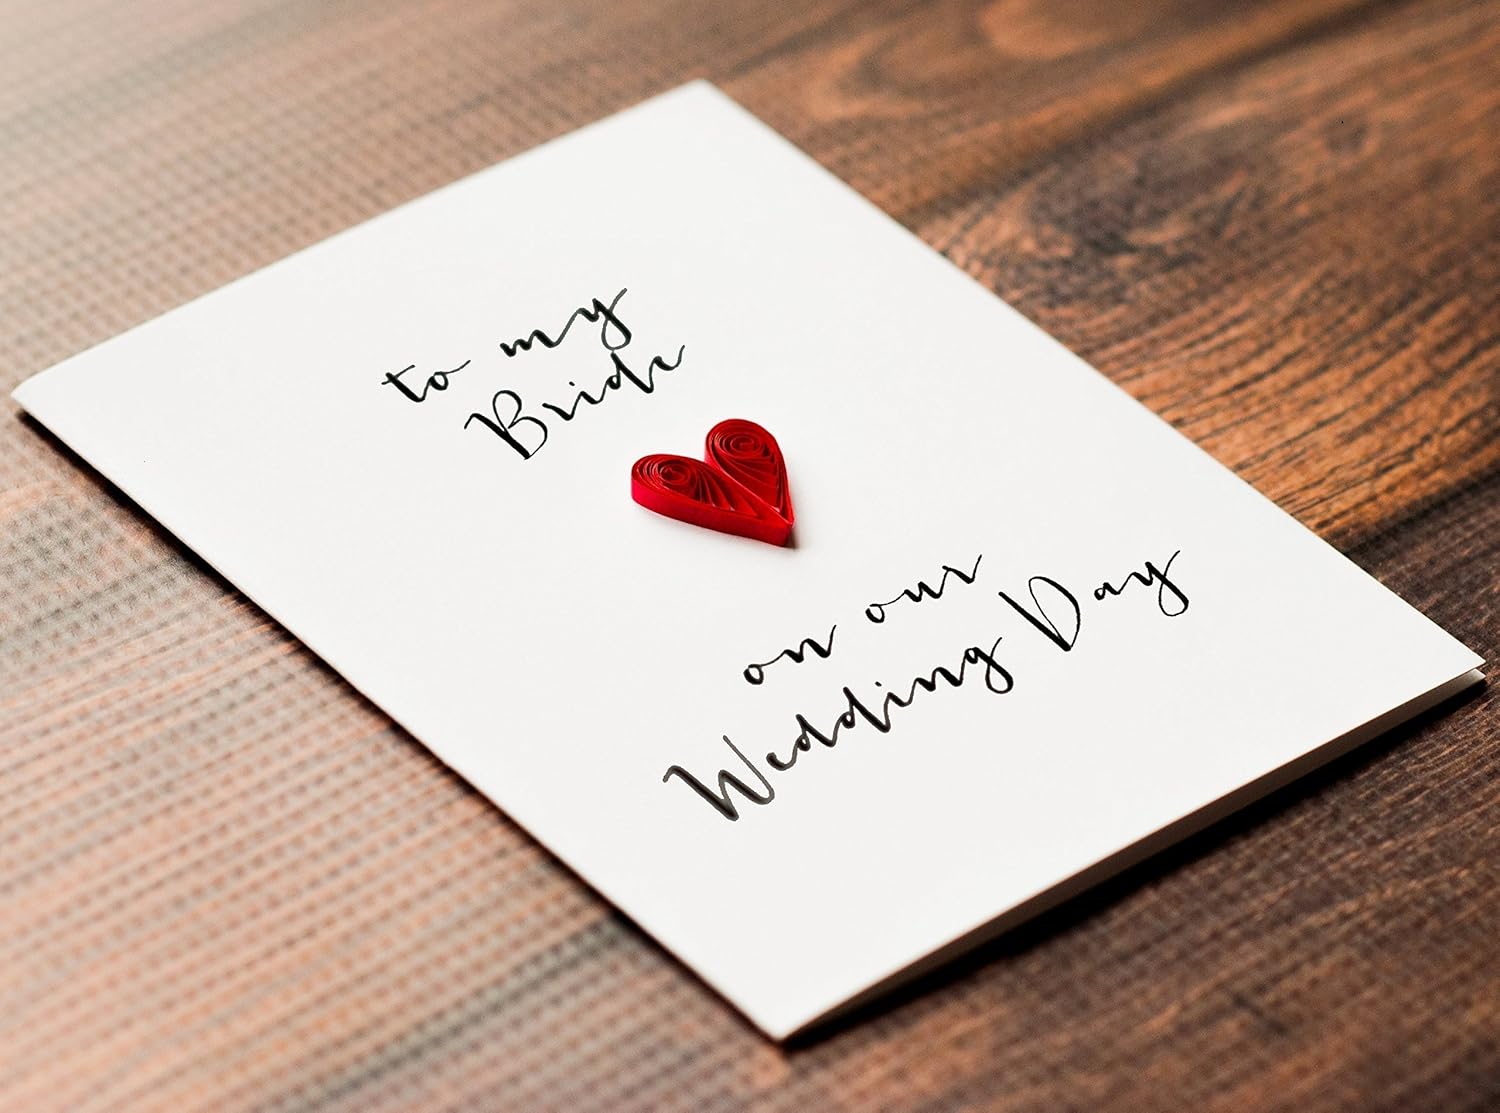 to my
Bride
on our
Wedding Day